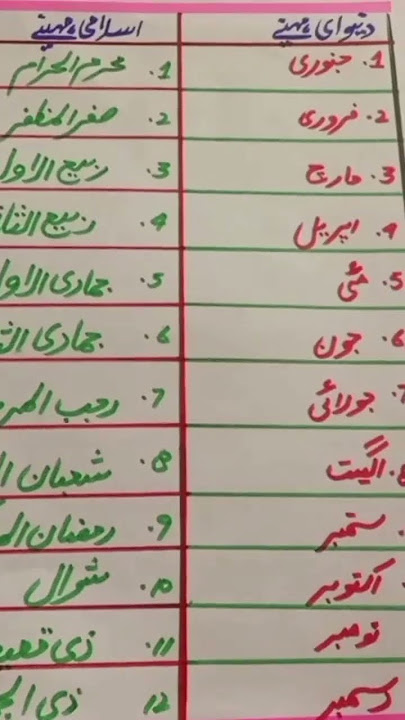 دنیوای مہینے اسلامی مہینے
1. جنوری 1. محرم الحرام
2. فروری 2. صفر المظفر
3. مارچ 3. ربیع الاو
4. اپریل 4. ربیع الثا
5. مئی 5. جمادی الاو
6. جون 6. جمادی الث
7. جولائی 7. رجب المر
8. اگست 8. شعبان ا
. ستمبر 9. رمضان الم
. اکتوبر 10. شوال
نومبر 11. ذی قعد
دسمبر 12 ذی الح